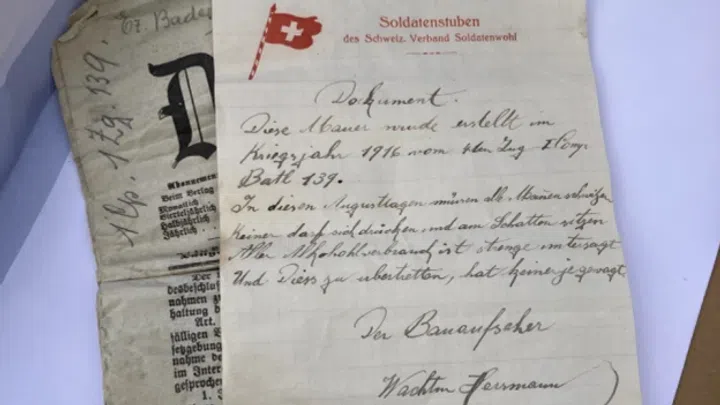 Ez. Baden
1 Kp. 1 Zg. 139.
D
Abonnement
Beim Verlag
Monatlich
Vierteljährlich
Halbjährlich
Jährlich
Der
desbeschlu
nahmen zu
haltung d
Art.
fälligen B
setzgebung
nahme de
im Intere
gesprochen
1. J
Soldatenstuben
des Schweiz. Verband Soldatenwohl
Dokument.
Diese Mauer wurde erstellt im
Kriegsjahr 1916 vom 4ten Zug I Comp.
Batl 139.
In diesen Augusttagen müssen alle Mannen schwitzen
Keiner darf sich drücken, und am Schatten sitzen
Aller Alkohohlverbrauch ist strenge untersagt
Und Diess zu übertretten, hat keiner je gewagt
Der Bauaufseher
Wachtm Herrmann